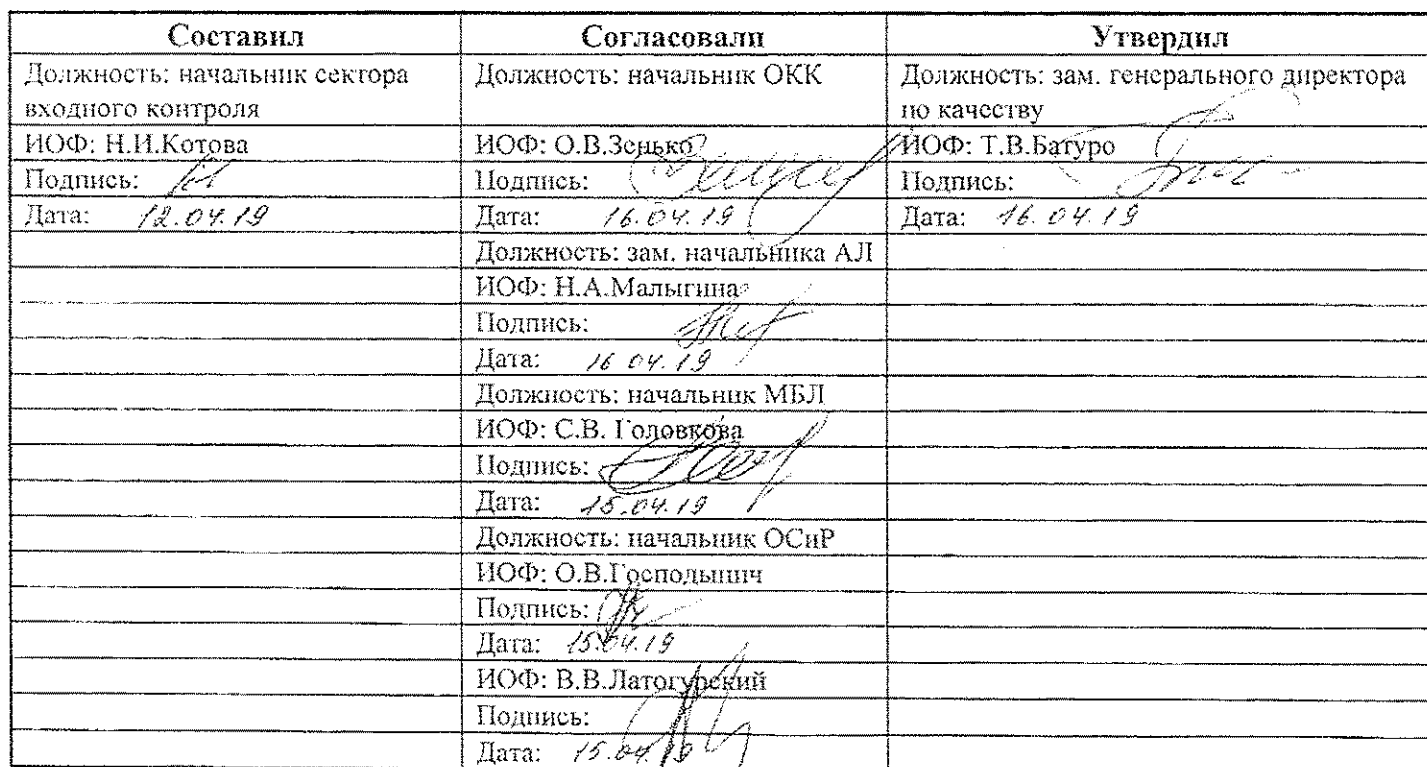 Составил Согласовали Утвердил
Должность: начальник сектора Должность: начальник ОКК Должность: зам. генерального директора
входного контроля по качеству
ИОФ: Н.И.Котова ИОФ: О.В.Зенько ИОФ: Т.В.Батуро
Подпись: Подпись: Подпись:
Дата: 12.04.19 Дата: 16.04.19 Дата: 16.04.19
Должность: зам. начальника АЛ
ИОФ: Н.А.Малыгина
Подпись:
Дата: 16 04.19
Должность: начальник МБЛ
ИОФ: С.В. Головкова
Подпись:
Дата: 15.04.19
Должность: начальник ОСиР
ИОФ: О.В.Господынич
Подпись:
Дата: 15.04.19
ИОФ: В.В.Латогурский
Подпись:
Дата: 15.04.19